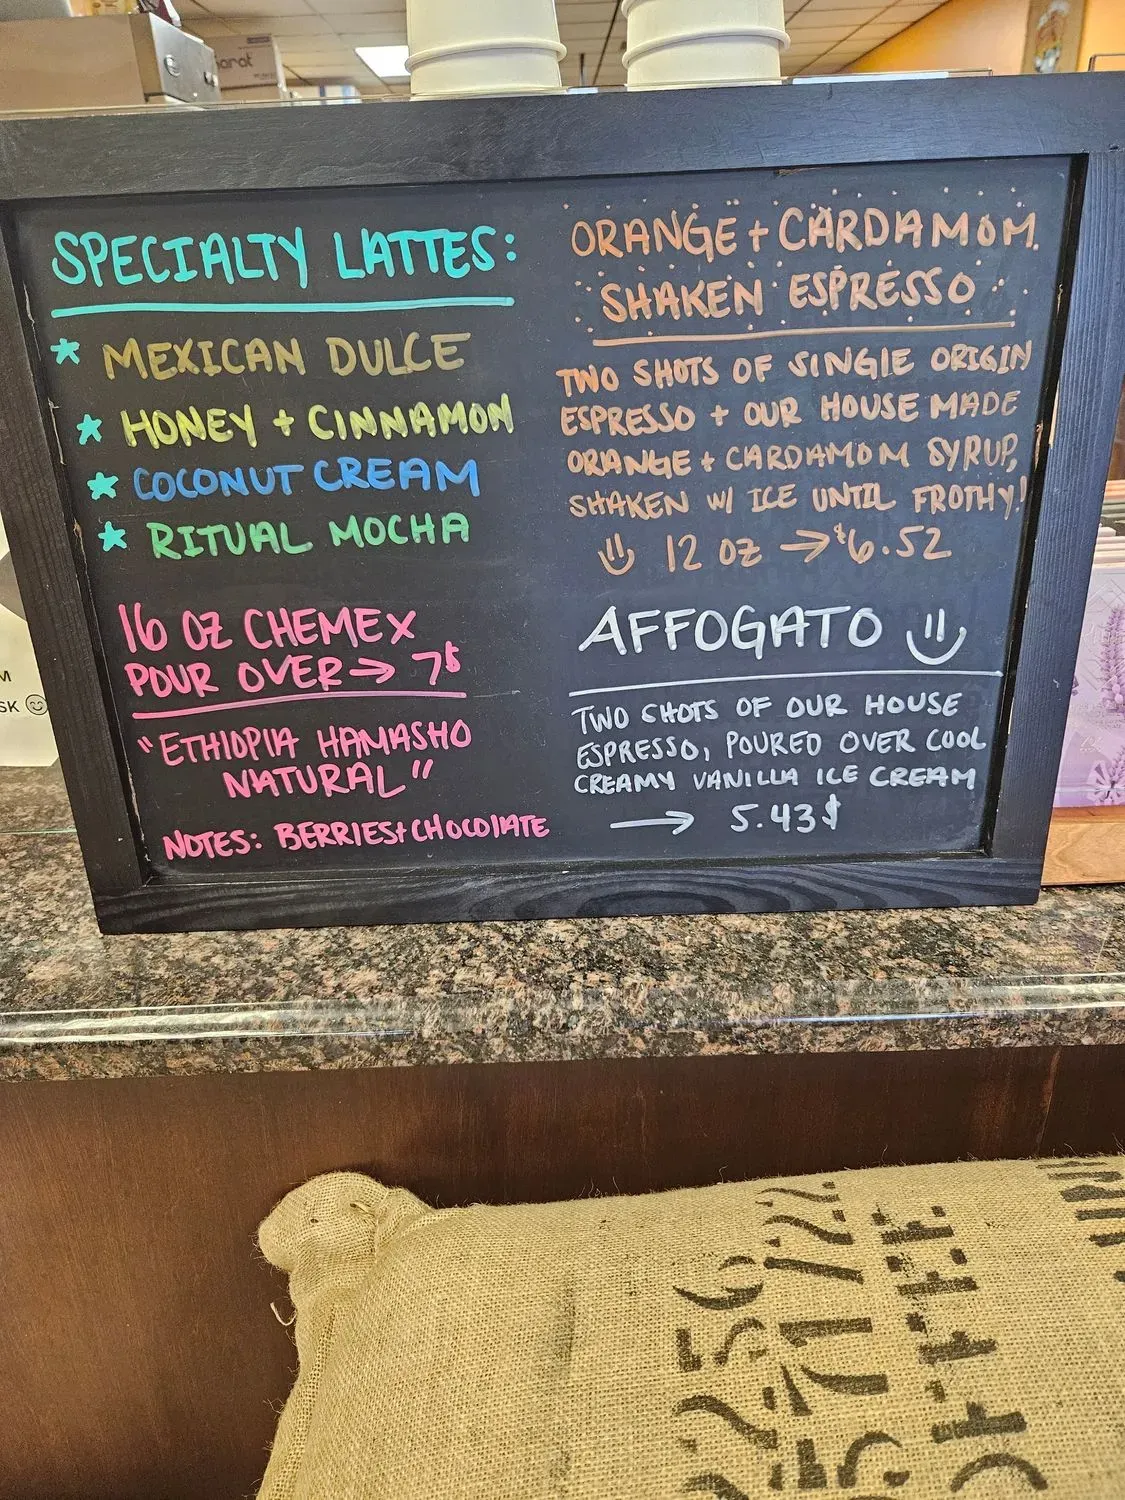 SPECIALTY LATTES:
MEXICAN DULCE
HONEY + CINNAMON
COCONUT CREAM
RITUAL MOCHA
16 OZ CHEMEX
POUR OVER → 7$
"ETHIOPIA HAMASHO
NATURAL"
NOTES: BERRIES+CHOCOLATE
ORANGE + CARDAMOM
SHAKEN ESPRESSO
TWO SHOTS OF SINGLE ORIGIN
ESPRESSO + OUR HOUSE MADE
ORANGE + CARDAMOM SYRUP,
SHAKEN W/ ICE UNTIL FROTHY!
12 OZ → $6.52
AFFOGATO
TWO SHOTS OF OUR HOUSE
ESPRESSO, POURED OVER COOL
CREAMY VANILLA ICE CREAM
→ 5.43$